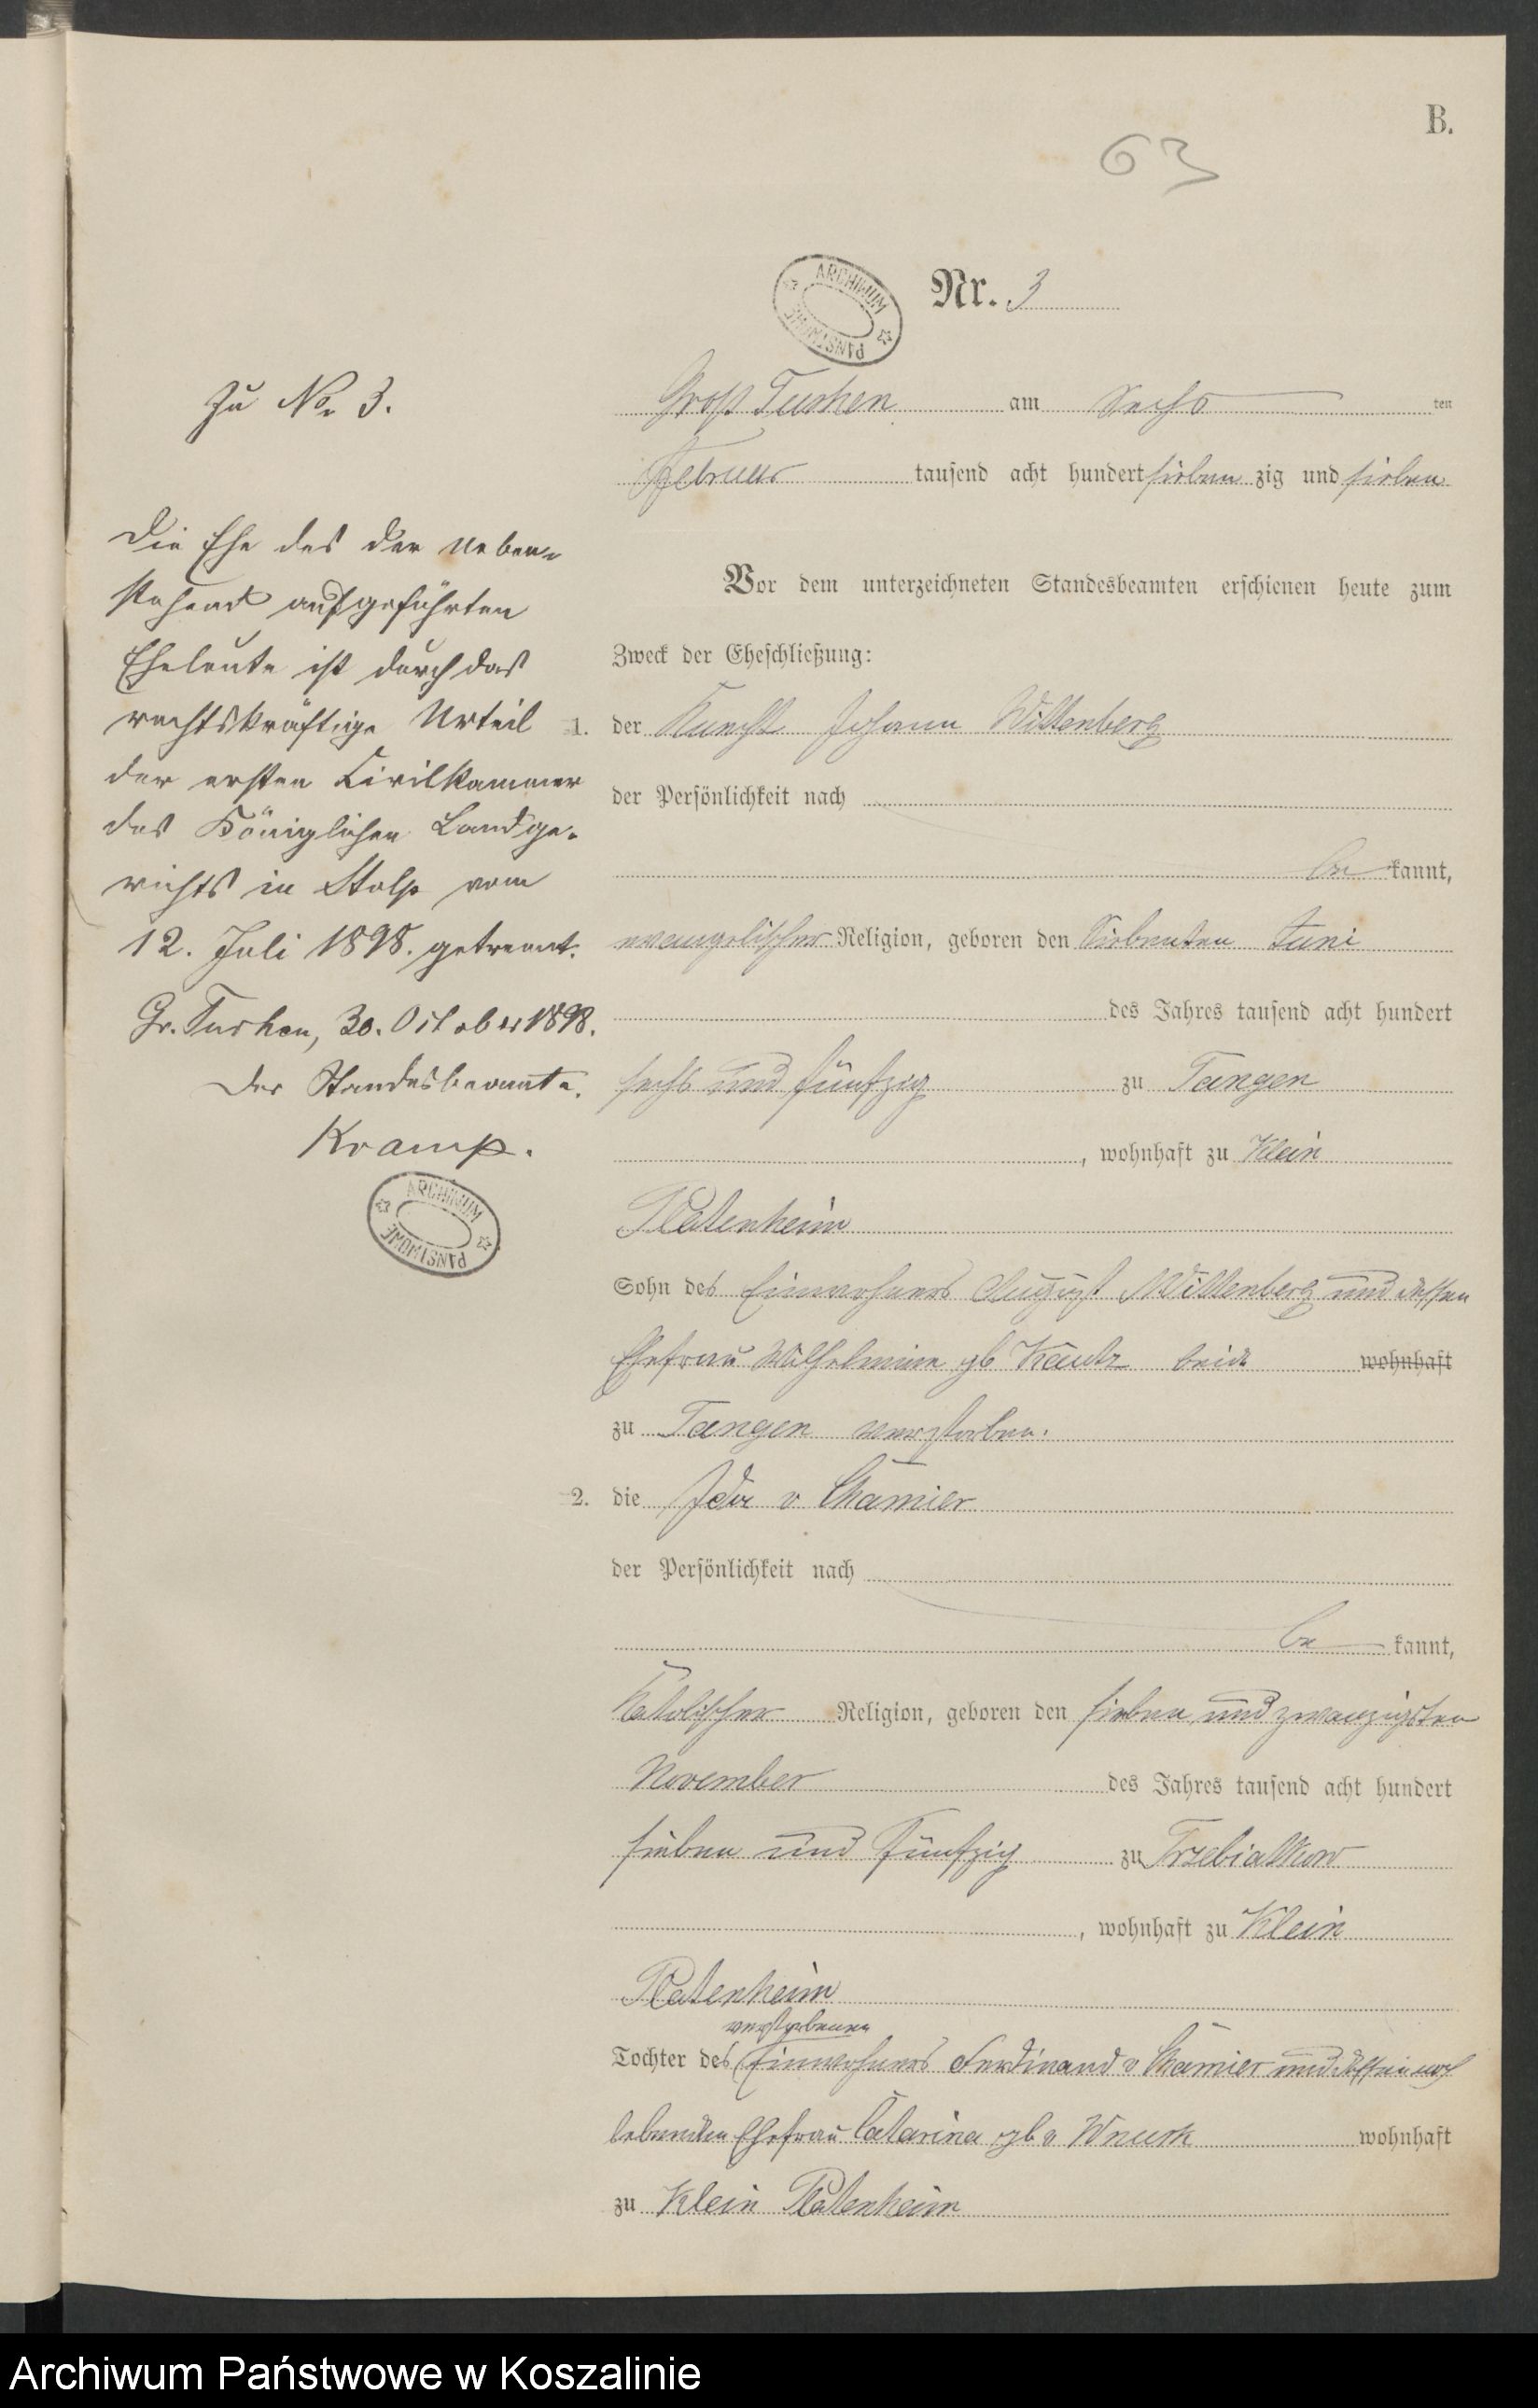 B.
63
ARCHIWUM PAŃSTWOWE
Nr. 3
Zu No 3.
Die Ehe des der neben-
stehend aufgeführten
Eheleute ist durch das
rechtskräftige Urteil
der ersten Civilkammer
des Königlichen Landge-
richts in Stolp vom
12. Juli 1898. getrennt.
Gr. Tuchen, 30. October 1898.
Der Standesbeamte.
Kramp.
ARCHIWUM PAŃSTWOWE
Groß Tuchen am Sechs ten
Februar tausend acht hundert sieben zig und sieben
Vor dem unterzeichneten Standesbeamten erschienen heute zum
Zweck der Eheschließung:
1. der Knecht Johann Wittenberg
der Persönlichkeit nach
be kannt,
evangelischer Religion, geboren den Siebenten Juni
des Jahres tausend acht hundert
sechs und fünfzig zu Tangen
, wohnhaft zu Klein
Platenheim
Sohn des Einwohners August Wittenberg und dessen
Ehefrau Wilhelmine gb beide wohnhaft
zu Tangen verstorben.
2. die Ida v Chamier
der Persönlichkeit nach
be kannt,
Katolischer Religion, geboren den sieben und zwanzigsten
November des Jahres tausend acht hundert
sieben und fünfzig zu Trzebiatkow
, wohnhaft zu Klein
Platenheim
verstorbenen
Tochter des Einwohners Ferdinand v Chamier und dessen noch
lebenden Ehefrau Catarina gb v Wnuck wohnhaft
zu Klein Platenheim
Archiwum Państwowe w Koszalinie